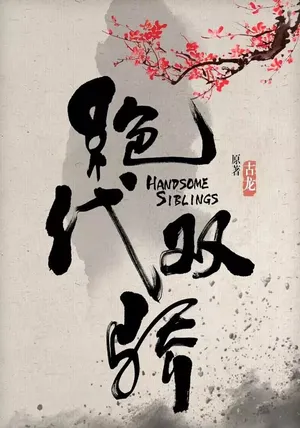 绝代双骄
HANDSOME
SIBLINGS
原著
古龙